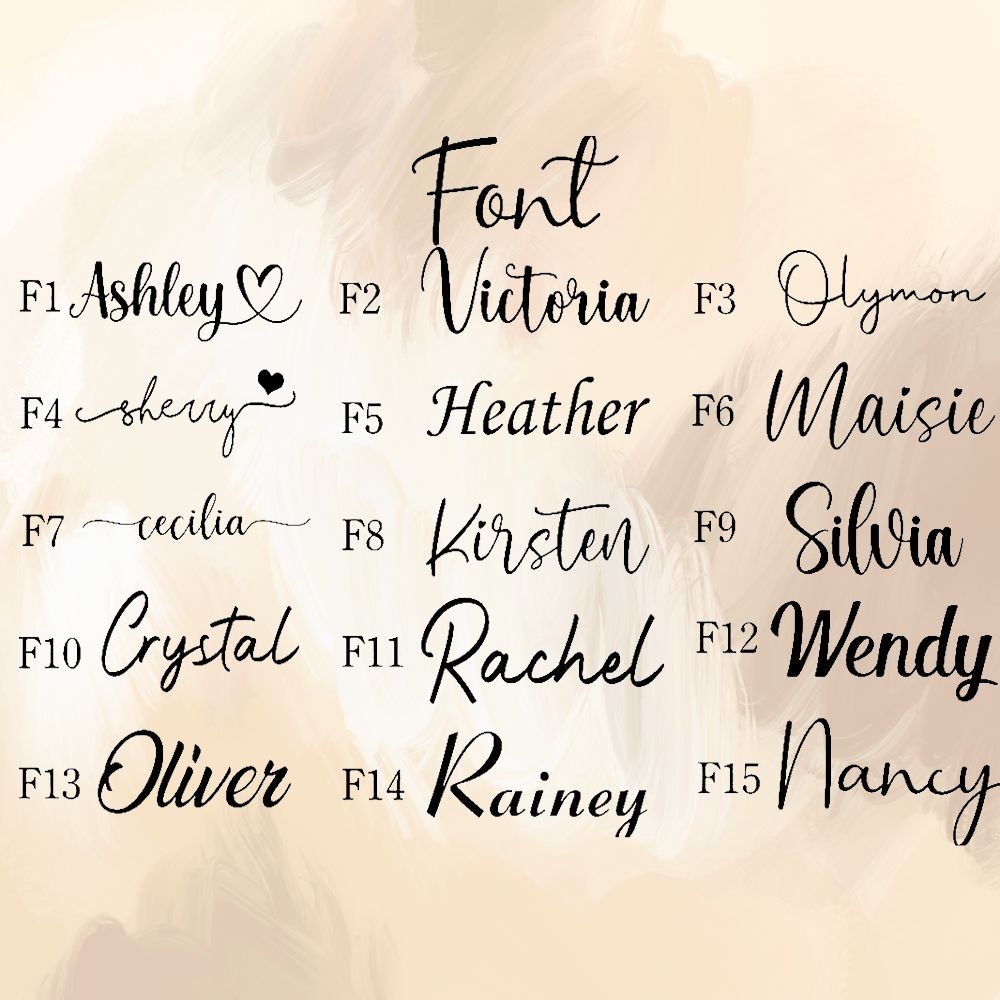 Font
F1 Ashley♡ F2 Victoria F3 Olymon
F4 sherry♥ F5 Heather F6 Maisie
F7 cecilia F8 Kirsten F9 Silvia
F10 Crystal F11 Rachel F12 Wendy
F13 Oliver F14 Rainey F15 Nancy